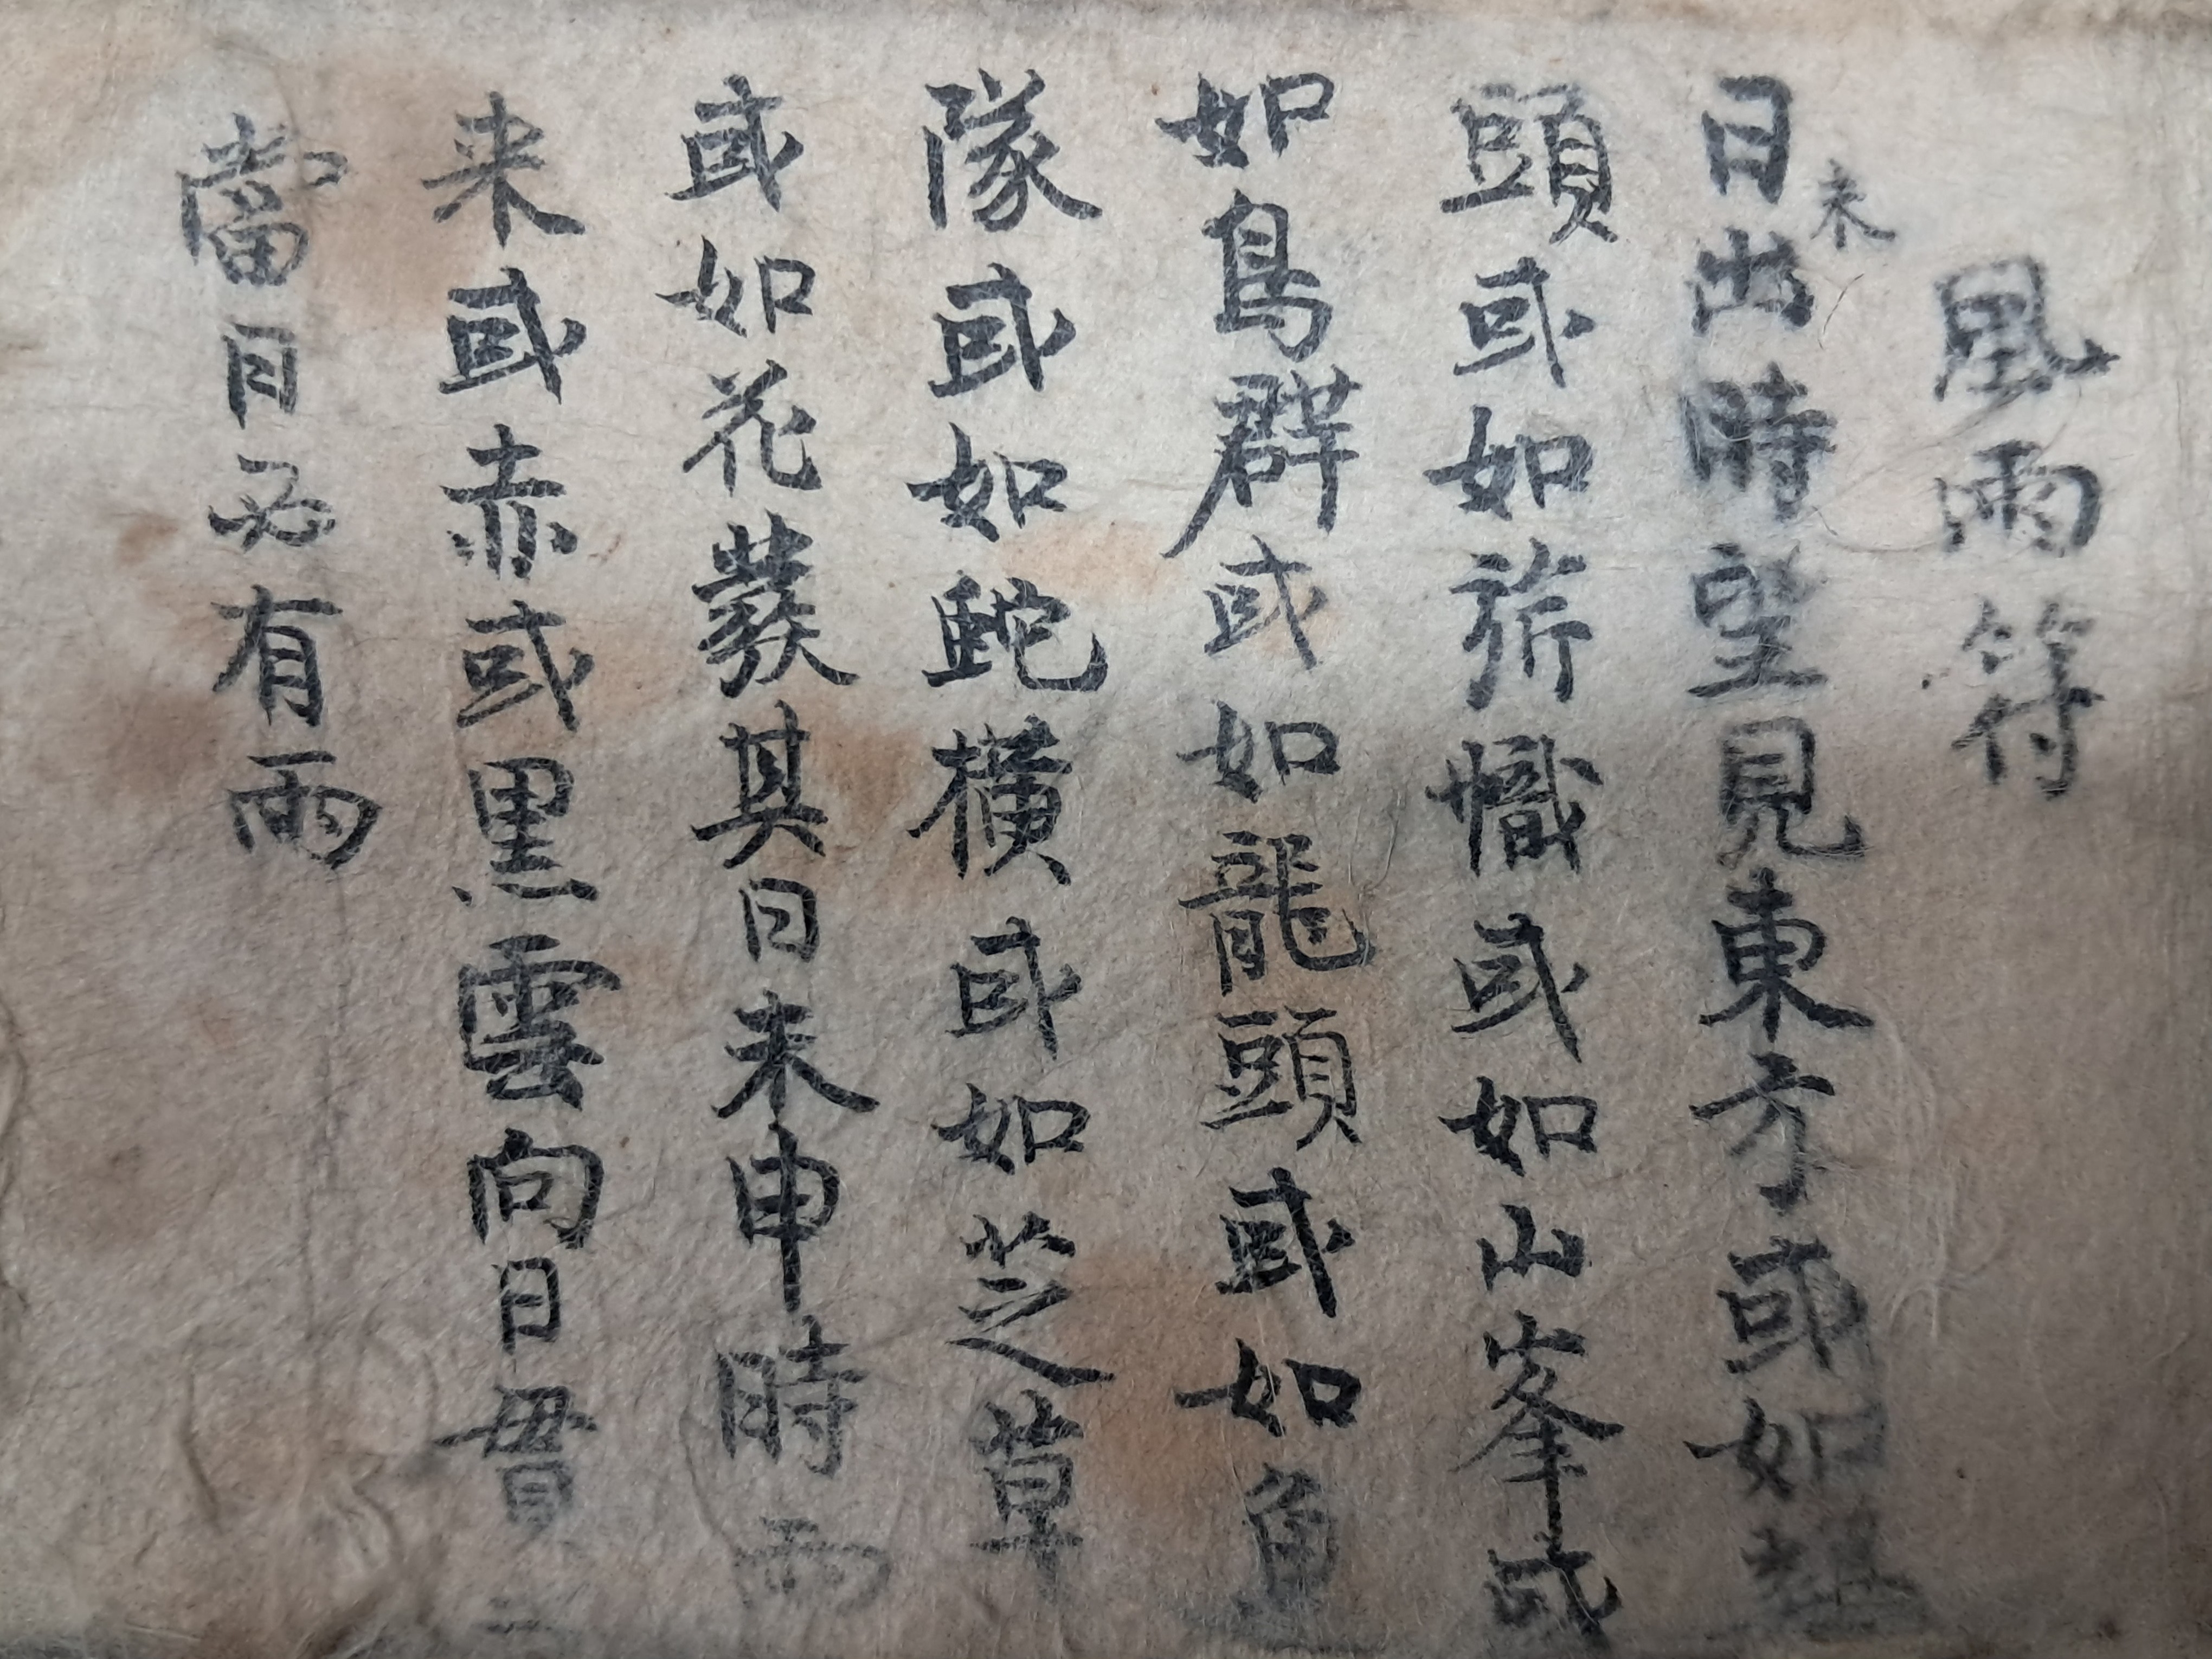 風雨符
日未出時望見東方或如
頭或如旂幟或如山峯或
如鳥群或如龍頭或如魚
隊或如蛇橫或如芝草
或如花蕤其日未申時雨
来或赤或黒雲向日貫之
當日必有雨